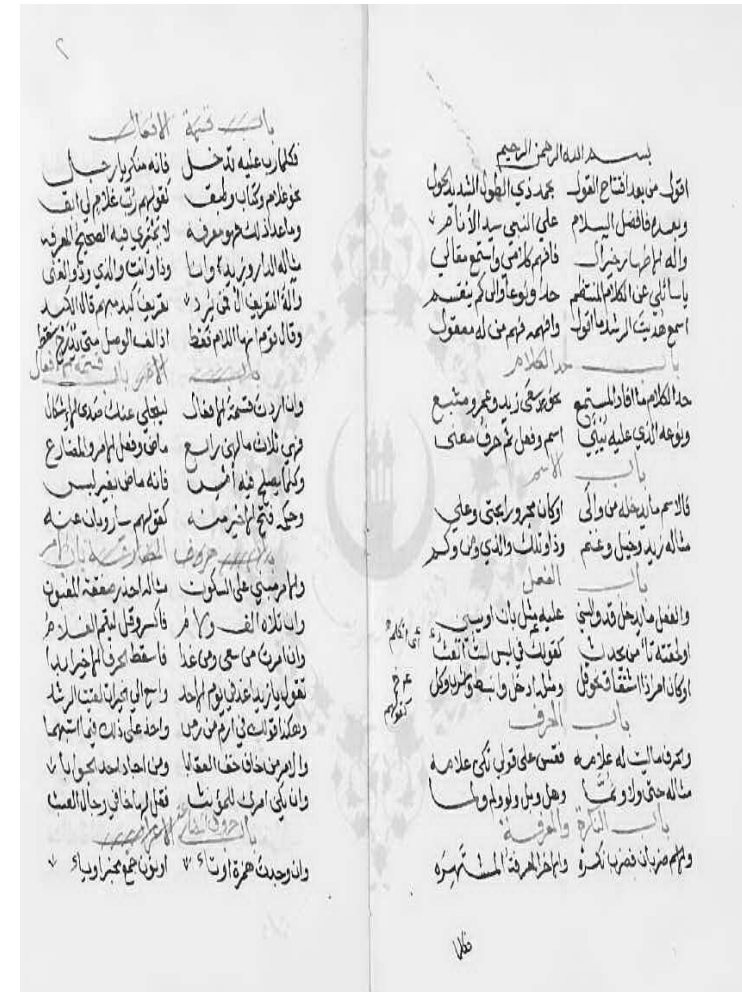 بسم الله الرحمن الرحيم
اقول من بعد افتتاح القول بحمد ذي الطول الشديد الحول
وبعده فافضل السلام على النبي سيد الأنام
واله الاطهار خير ال فافهم كلامي واستمع مقالي
يا سائلي عن الكلام المنتظم حدا ونوعا والى كم ينقسم
اسمع هديت الرشد ما اقول وافهمه فهم من له معقول
باب حد الكلام
حد الكلام ما افاد المستمع نحو سعى زيد وعمرو متبع
ونوعه الذي عليه يبنى اسم وفعل ثم حرف معنى
باب الاسم
فالاسم ما يدخله من والى او كان مجرورا بحتى وعلى
مثاله زيد وخيل وغنم وذا وتلك والذي ومن وكم
باب الفعل
والفعل ما يدخل قد والسين عليه مثل بان او يبين
او لحقته تاء من يحدث كقولك في ليس لست انفث
او كان امرا ذا اشتقاق نحو قل ومثله ادخل وانبسط واشرب وكل
باب الحرف
والحرف ما ليست له علامه فقس على قولي تكن علامه
مثاله حتى ولا وثما وهل وبل ولو ولم ولما
باب النكرة والمعرفة
والاسم ضربان فضرب نكره والاخر المعرفة المشتهره
فكلما
٢
باب قسمة الافعال
فكلما رب عليه تدخل فانه منكر يا رجل
نحو غلام وكتاب وطبق كقولهم رب غلام لي ابق
وما عدا ذلك فهو معرفه لا يمتري فيه الصحيح المعرفه
مثاله الدار وزيد وانا وذا وانت والذي وذو الغنى
وآلة التعريف ال فمن يرد تعريف كبد مبهم قال الكبد
وقال قوم انها اللام فقط اذ الف الوصل متى تدرج سقط
باب قسمة الافعال
وان اردت قسمة الافعال لينجلي عنك صدى الاشكال
فهي ثلاث ما لهن رابع ماض وفعل الامر والمضارع
وكلما يصلح فيه امس فانه ماض بغير لبس
وحكمه فتح الاخير منه كقولهم سار وبان عنه
باب الامر
والامر مبني على السكون مثاله احذر صفقة المغبون
وان تلاه الف ولام فاكسر وقل ليقم الغلام
وان امرت من سعى ومن غدا فاسقط الحرف الاخير ابدا
تقول يا زيد اغد في يوم الاحد واسع الى الخيرات لقيت الرشد
وهكذا قولك في ارم من رمى واحذ على ذلك فيما استبهما
والامر من خاف خف العقابا ومن اجاد اجد الجوابا
وان يكن امرك للمؤنث فقل لها خافي رجال العبث
وان وجدت همزة او تاء او نون جمع مخبر او ياء